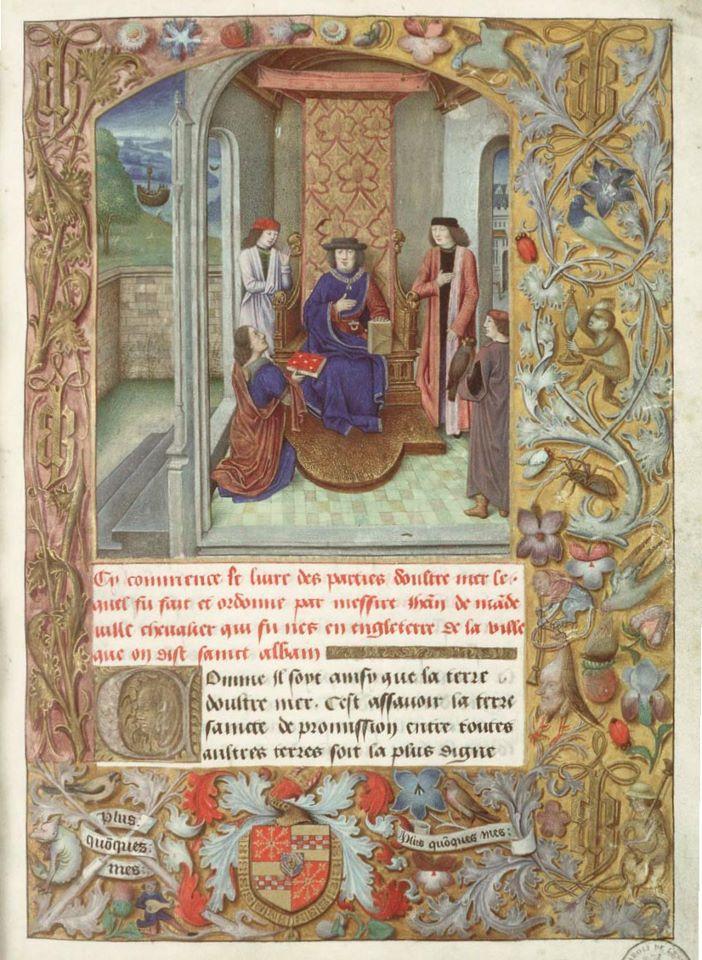 Cy commence le livre des parties doultre mer le
quel fu fait et ordonne par messire Jehan de māde
ville chevalier qui fu nes en engleterre de la ville
que on dist sainct albain
Comme Il soyt ainsy que la terre
doultre mer. Cest assavoir la terre
saincte de promission entre toutes
aultres terres soit la plus digne
Plus.
quōques:
mes:
Plus quōques mes: